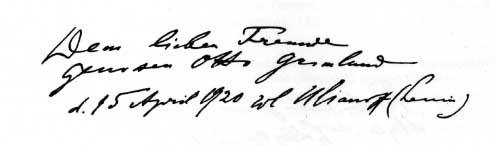 Dem lieben Freunde
Genossen Otto Grimlund
d. 15 April 1920 Wl Ulianoff (Lenin)